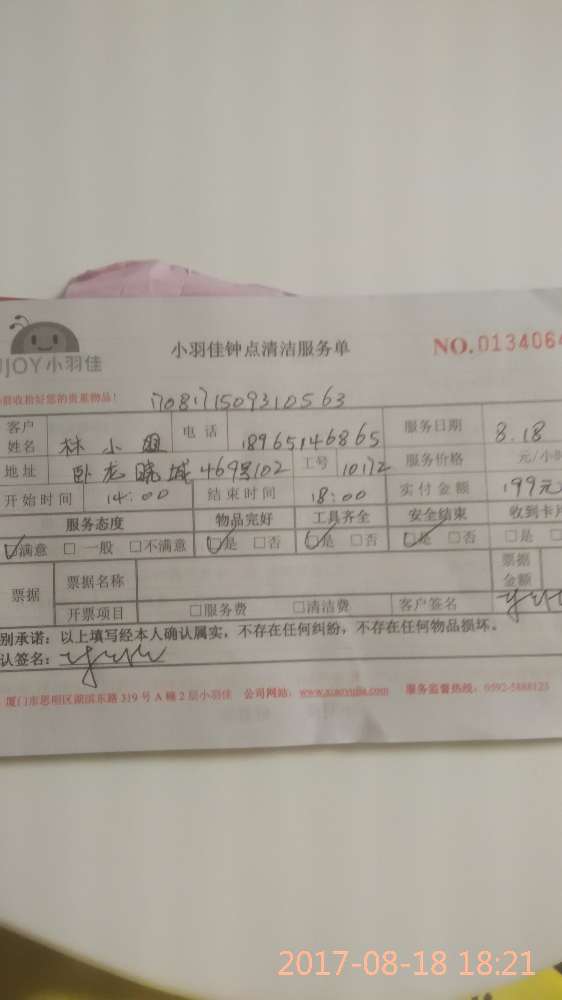 小羽佳钟点清洁服务单
NO.0134064
JOY小羽佳
收拾好您的贵重物品!
170817150931 0563
客户姓名 林小姐 电话 18965146865 服务日期 8.18
地址 卧龙晓城469号102 工号 10172 服务价格 元/小
开始时间 14:00 结束时间 18:00 实付金额 199元
服务态度 物品完好 工具齐全 安全结束 收到卡片
☑满意 □一般 □不满意 ☑是 □否 ☑是 □否 ☑是 □否 □是 □
票据 票据名称 票据金额
开票项目 □服务费 □清洁费 客户签名
别承诺:以上填写经本人确认属实,不存在任何纠纷,不存在任何物品损坏。
认签名:
厦门市思明区湖滨东路319号A幢2层小羽佳 公司网站:www.xiaoyujia.com 服务监督热线:0592-5888123
2017-08-18 18:21